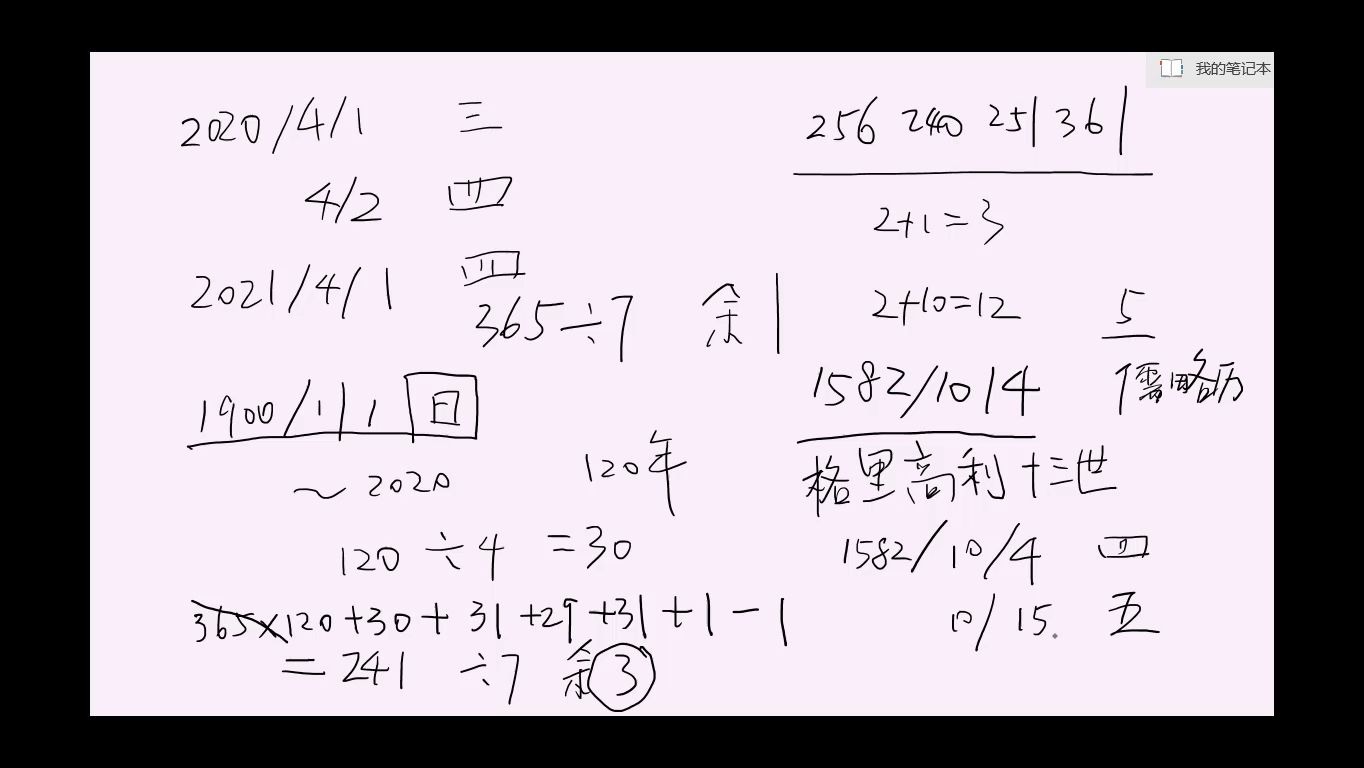 我的笔记本
2020/4/1 三
4/2 四
2021/4/1 四
365÷7 余1
1900/1/1 日
~2020 120年
120÷4 =30
365×120+30+31+29+31+1-1
=241 ÷7 余3
256 240 251 361
2+1=3
2+10=12 5
1582/10/4 儒略历
格里高利十三世
1582/10/4 四
10/15 五